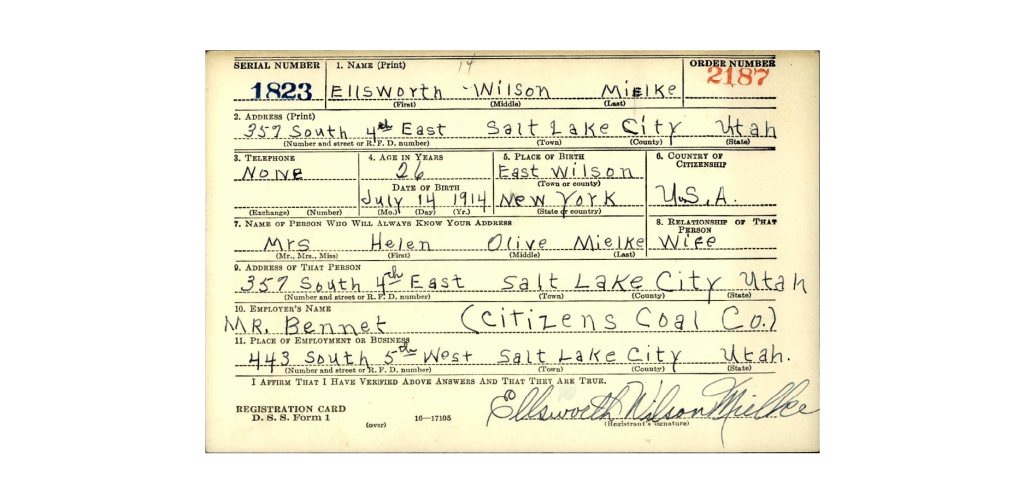 SERIAL NUMBER 1. NAME (Print) 14 ORDER NUMBER
1823 Ellsworth Wilson Mielke 2187
(First) (Middle) (Last)
2. ADDRESS (Print)
357 South 4th East Salt Lake City Utah
(Number and street or R. F. D. number) (Town) (County) (State)
3. TELEPHONE 4. AGE IN YEARS 5. PLACE OF BIRTH 6. COUNTRY OF CITIZENSHIP
None 26 East Wilson
DATE OF BIRTH (Town or county)
July 14 1914 New York U.S.A.
(Exchange) (Number) (Mo.) (Day) (Yr.) (State or country)
7. NAME OF PERSON WHO WILL ALWAYS KNOW YOUR ADDRESS 8. RELATIONSHIP OF THAT PERSON
Mrs Helen Olive Mielke Wife
(Mr., Mrs., Miss) (First) (Middle) (Last)
9. ADDRESS OF THAT PERSON
357 South 4th East Salt Lake City Utah
(Number and street or R. F. D. number) (Town) (County) (State)
10. EMPLOYER'S NAME
Mr. Bennet (Citizens Coal Co.)
11. PLACE OF EMPLOYMENT OR BUSINESS
443 South 5th West Salt Lake City Utah.
(Number and street or R. F. D. number) (Town) (County) (State)
I AFFIRM THAT I HAVE VERIFIED ABOVE ANSWERS AND THAT THEY ARE TRUE.
Ellsworth Wilson Mielke
REGISTRATION CARD
D. S. S. Form 1 16—17105 (Registrant's signature)
(over)